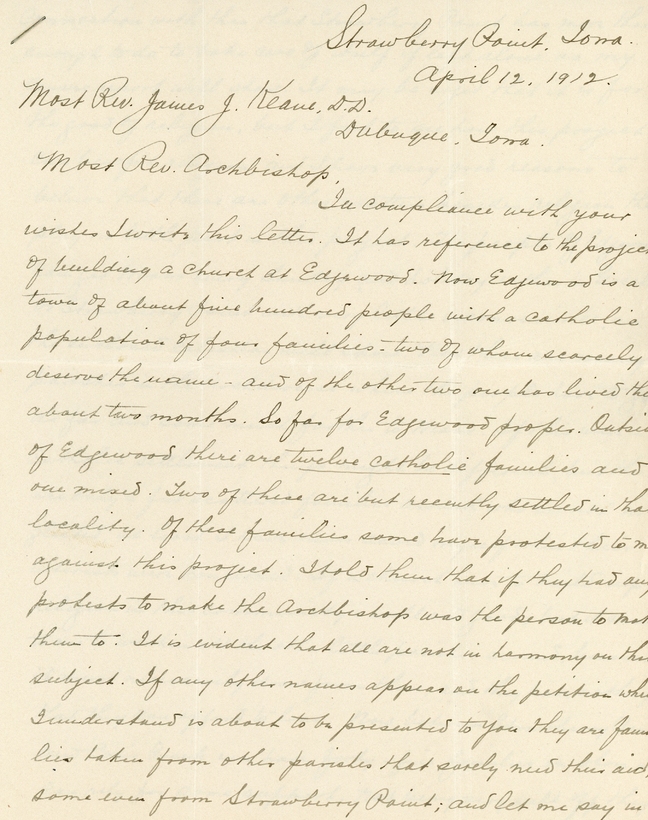 Strawberry Point, Iowa.
April 12, 1912.
Most Rev. James J. Keane, D.D.
Dubuque, Iowa.
Most Rev. Archbishop,
In compliance with your
wishes I write this letter. It has reference to the projec
of building a church at Edgewood. Now Edgewood is a
town of about five hundred people with a catholic
population of four families - two of whom scarcely
deserve the name - and of the other two one has lived the
about two months. So far for Edgewood proper. Outsi
of Edgewood there are twelve catholic families and
one mixed. Two of these are but recently settled in tha
locality. Of these families some have protested to m
against this project. I told them that if they had any
protests to make the Archbishop was the person to mak
them to. It is evident that all are not in harmony on thi
subject. If any other names appear on the petition whi
I understand is about to be presented to you they are fami
lies taken from other parishes that sorely need their aid,
some even from Strawberry Point; and let me say in